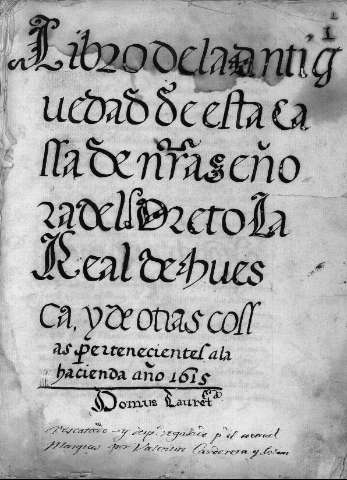 1
Libro de la antig
uedad de esta Ca
ssa de nra seño
ra del loreto La
Real de hues
ca, y de otras coss
as pertenecientes a la
hacienda año 1615
Domus Lauret
Rescatado y regalado p^r el actual
Marques por Valentin Carderera y